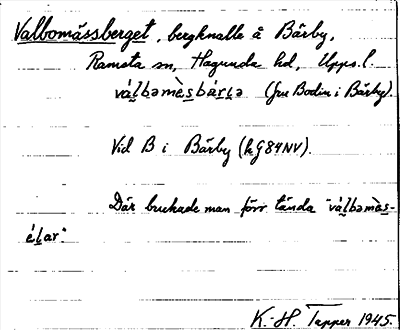 Valbomässberget, bergknalle å Bärby,
Ramsta sn, Hagunda hd, Upps. l.
válbəmὲsbárɩə (fru Bodin i Bärby).
Vid B i Bärby (kG84NV).
Där brukade man förr tända "válbəmὲs-
élar."
K.-H. Tapper 1945.